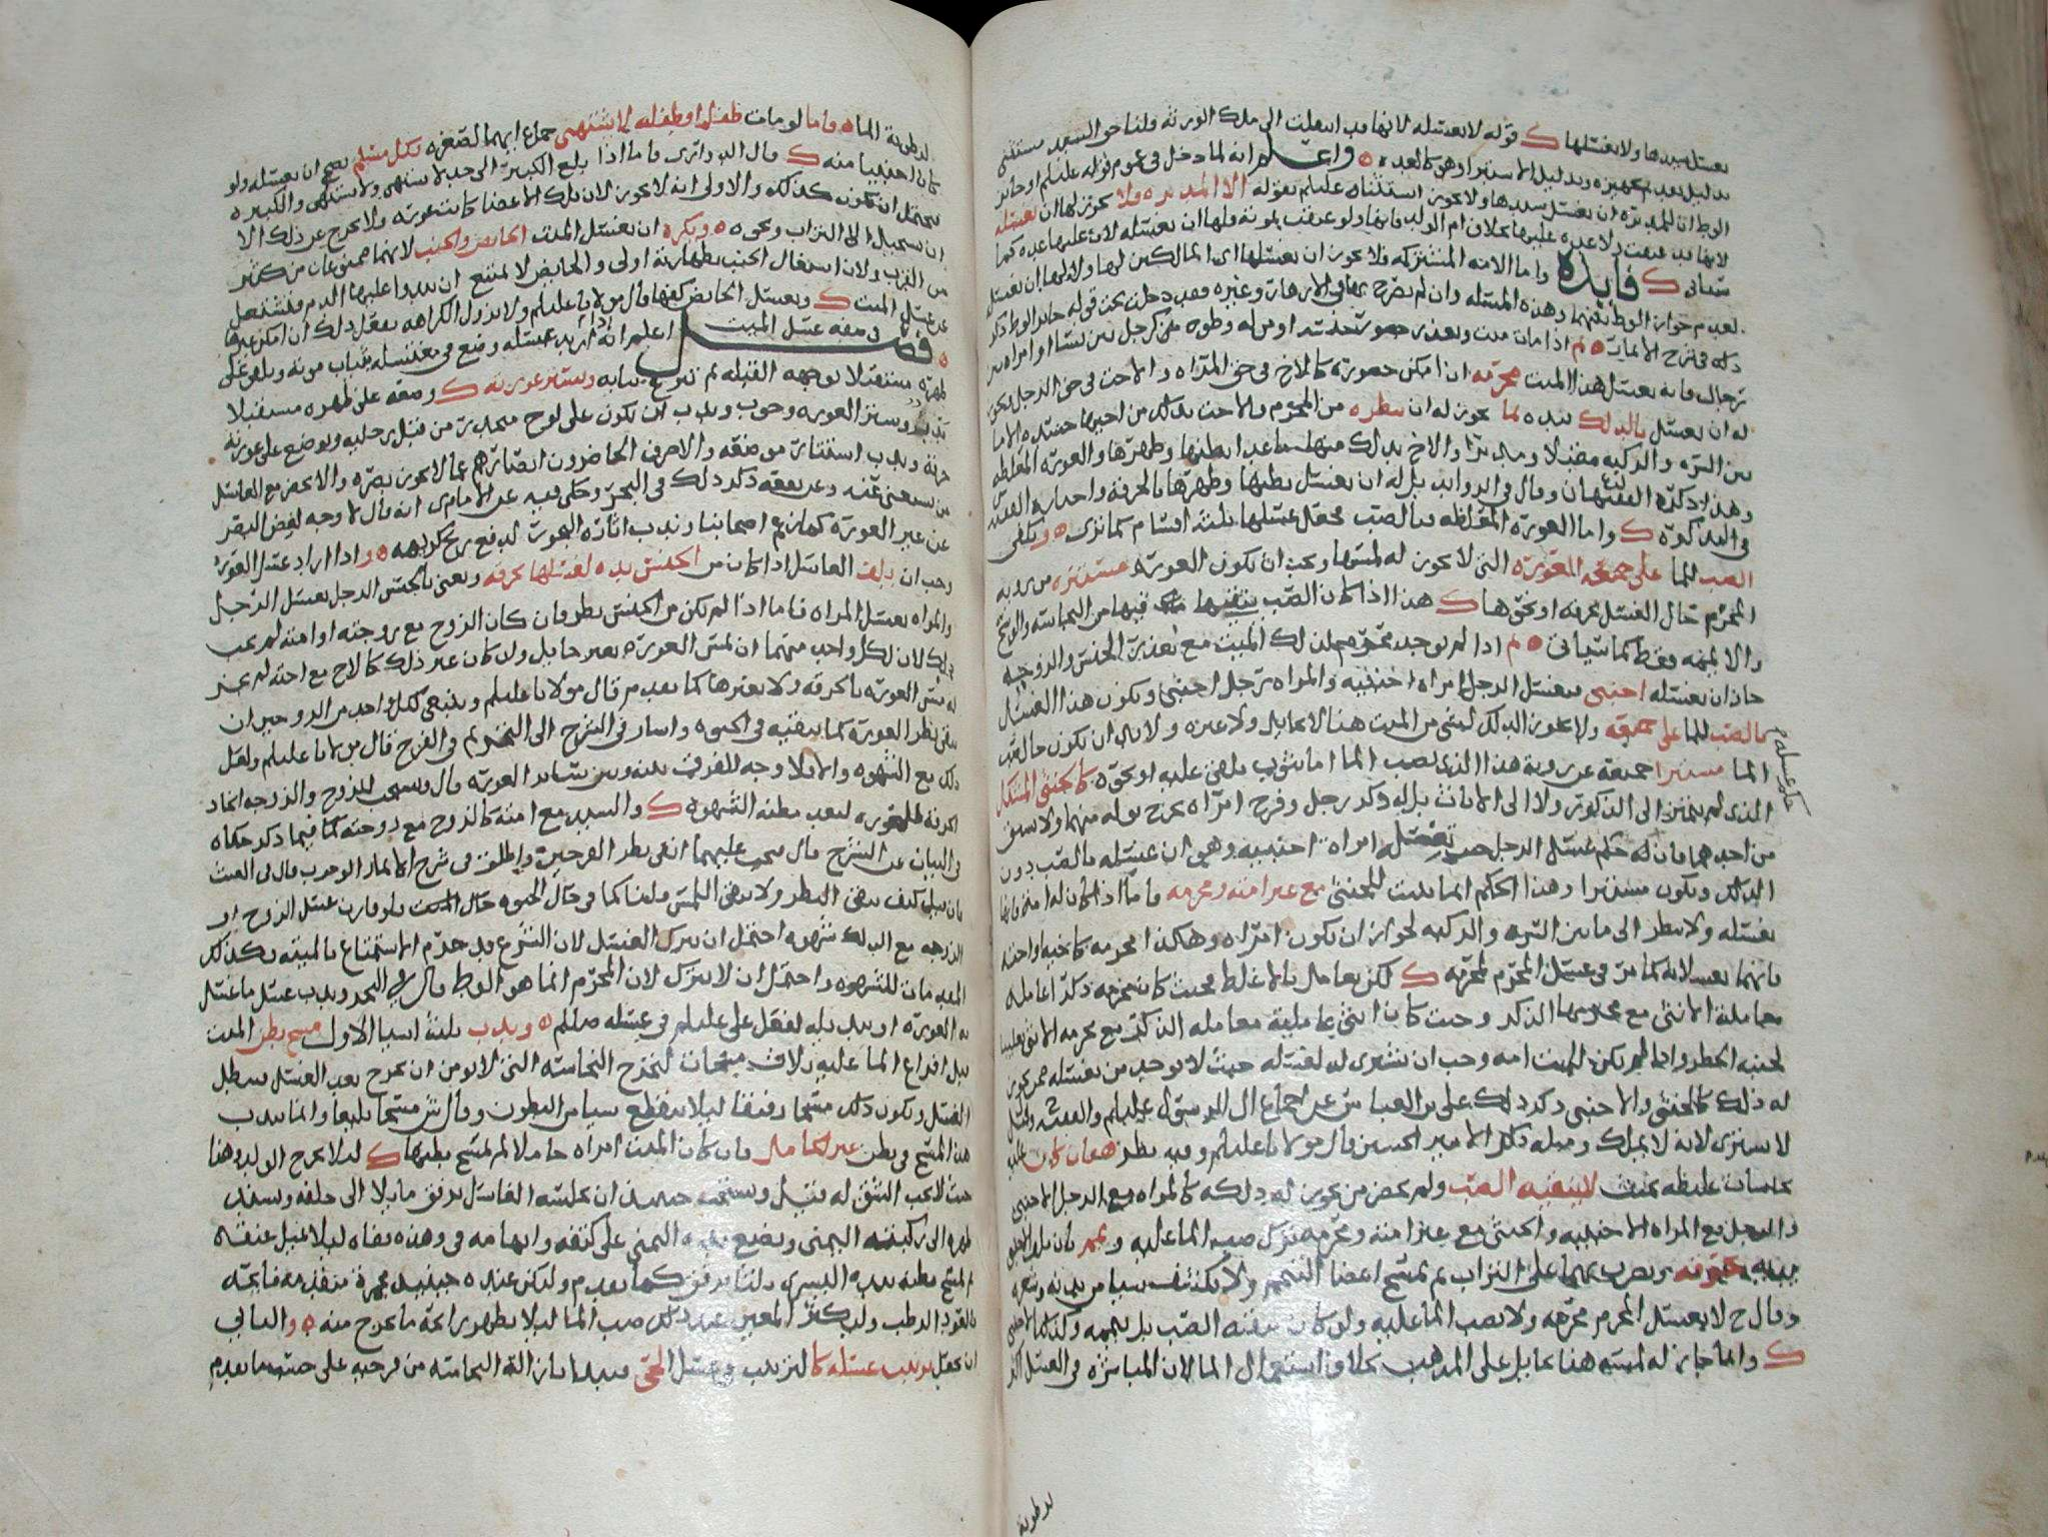 يغسل سيدها ولا يغسلها ك قوله لا تغسله لانها قد انتقلت الى ملك الورثة قلنا حق السيد مستثنى
بدليل تجهيزه وبدليل الاستبرا وهو كالعده ه واعلم انه لما دخل في عموم قوله عليلم او جايز
الوطي ان للمدبرة ان تغسل سيدها ولا يجوز استثناه عليلم بقوله الا المدبره ولا يجوز لها ان تغسله
لانها قد عتقت ولا عده عليها بخلاف ام الولد فانها ولو عتقت بموته فلها ان تغسله لان عليها عده كما
سياتي ك فايده واما الامه المشتركه فلا يجوز ان يغسلها اي المالكين لها ولا لها ان تغسله
لعدم جواز الوطي وهذه المسئله وان لم يصرح بها في الازهار وغيره فقد دخلت تحت قوله جايز الوطي ذكر
ذلك في شرح الاثمار ه ثم اذا مات ميت وتعذر حضور جنسه او من له وطوه من كرجل بين نسا او امراه بين
رجال فانه يغسل هذا الميت محرمه ان امكن حضوره كالاخ في حق المراه والاخت في حق الرجل ويجوز
له ان يغسل بالدلك بيده لما يجوز له ان ينظره من المحرم
بين السره والركبه مقبلا ومدبرا والاخ يدلك منها ما عدا بطنها وظهرها والعوره المغلظه
وهذا ذكره الفقيهان وقال في الزوايد بل له ان يغسل بطنها وظهرها بالخرقه
في التذكره ك واما العوره المغلظه فبالصب فحصل غسلها ثلثه اقسام كما ترى ه ويكفي
الصب للما على جميع العوره التي لا يجوز له لمسها ويجب ان تكون العوره مستتره من رويه
المحرم حال الغسل بخرقه او نحوها ك هذا اذا كان الصب ينقيها مما فيها من النجاسه والوسخ
والا يممه فقط كما سياتي ه ثم اذا لم يوجد محرم لذلك الميت مع تعذر الجنس والزوجه
جاز ان يغسله اجنبي فيغسل الرجل امراه اجنبيه والمراه رجل اجنبي ويكون هذا الغسل
بالصب للما على جميعه ولا يجوز الدلك لشي من الميت هنا لا بحايل ولا غيره ولا بد ان يكون حال صب
الما مستترا جميعه عن رويه هذا الذي يصب الما اما بثوب يلقى عليه او نحوه كالخنثى المشكل
الذي لم يتميز الى الذكور ولا الى الاناث بل له ذكر رجل وفرج امراه يخرج بوله منهما ولا سبق
من احدهما فان له حكم غسل الرجل حيث تغسله امراه اجنبيه وهو ان غسله بالصب دون
الدلك ويكون مستترا وهذا الحكم انما يثبت للخنثى مع غير امته ومحرمه فاما اذا كان له امه فانها
تغسله ولا تنظر الى ما بين السره والركبه لجواز ان تكون امراه وهكذا محرمه كاخيه واخته
فانهما يغسلانه كما مر في غسل المحرم لمحرمه ك لكن يعامل بالاغلظ فحيث كان محرمه ذكرا عامله
معامله الانثى مع محرمها الذكر وحيث كان انثى عاملته معامله الذكر مع محرمه الانثى تغليبا
لجنبه الحظر واذا لم تكن للميت امه وجب ان تشترى له لغسله حيث لا يوجد من يغسله ممن يجوز
له ذلك كالخنثى والاجنبي ذكر ذلك علي بن العباس عن اجماع ال الرسول عليلم
لا يشترى لانه لا يملك ومثله ذكر الامير الحسين قال مولانا عليلم وفيه نظر ه فان كان عليه
نجاسات غليظه بحيث لا ينقيه الصب ولم يحضر من يجوز له دلكه كالمراه مع الرجل الاجنبي
والرجل مع المراه الاجنبيه والخنثى مع غير امته ومحرمه ترك صب الما عليه ويمم بان يلف الاجنبي
يديه بخرقه ويضرب بهما على التراب ثم يمسح اعضا التيمم ولا يكشف شيا من بدنه وشعره
وقال ح لا يغسل المحرم محرمه ولا يصب الما عليه ولو كان ينقيه الصب بل ييممه وكذلك الاجنبي
ك وانما جاز له لمسه هنا بحايل على المذهب بخلاف استعمال الما لان المباشره في الغسل اكثر
حكم غسله م
لرطوبة
لرطوبة الما ه واما لو مات طفل او طفله لا يشتهى جماع ايهما لصغره فكل مسلم يصح ان يغسله ولو
كان اجنبيا منه ك قال الدواري فاما اذا بلغ الكبير الى حد لا يشتهي ولا يشتهى والكبيره
فيحتمل ان يكون كذلك والاولى انه لا يجوز لان تلك الاعضا كانت عوره ولا يخرج عن ذلك الا
ان يستحيل الى التراب ونحوه ه ويكره ان يغسل الميت الحايض والجنب لانهما ممنوعان من كثير
من القرب ولان اشتغال الجنب بطهارته اولى والحايض لا يمتنع ان يبدوا عليها الدم فتشتغل
عن غسل الميت ك وتغسل الحايض كفها قال مولانا عليلم ولا تزول الكراهه بفعل ذلك ان امكن غيرها
ه فصل في صفه غسل الميت اعلم انه اذا اريد غسله وضع في مغتسله بثياب موته ويلقى على
ظهره مستقبلا بوجهه القبله ثم تنزع ثيابه وتستر عورته ك وضعه على ظهره مستقبلا
ندب وستر العوره وجوب وندب ان يكون على لوح منحدر من قبل رجليه ويوضع على عورته
خرقه وندب استتار موضعه والا صرف الحاضرون ابصارهم عما لا يجوز نظره ولا يحضر مع الغاسل
من يستغنى عنه وعن ذكر ذلك في البحر وحكى فيه عن الامام ي انه قال لا وجه لغض البصر
عن غير العوره كما زعم اصحابنا وندب اثارة البخور لدفع ريح كريهه ه واذا اراد غسل العوره
وجب ان يلف الغاسل اذا كان من الجنس يده لغسلها بخرقه ونعني بالجنس الرجل يغسل الرجل
والمراه تغسل المراه فاما اذا لم يكن من الجنس نظر فان كان الزوج مع زوجته او امته لم يجب
ذلك لان لكل واحد منهما ان يمس العوره بغير حايل وان كان غير ذلك كالاخ مع اخته لم يجز
له مس العوره بالخرقه ولا بغيرها كما تقدم قال مولانا عليلم وينبغي لكل واحد من الزوجين ان
يتقي نظر العوره كما يتقيه في الحيوه واشار في الشرح الى التحريم في الفرج قال مولانا عليلم ولعل
ذلك مع الشهوه والا فلا وجه للفرق بينه وبين ساير العوره قال ويستحب للزوج والزوجه اتخاذ
الخرقه للعوره لبعد مظنه الشهوه ك والسيد مع امته كالزوج مع زوجته كما فيما ذكر حكاه
في البيان عن الشرح قال يجب عليهما اتقى نظر الفرجين واطلق في شرح الاثمار الوجوب قال في الغيث
فان قيل كيف يتقى النظر ولا يتقى اللمس قلنا كما في حال الحيوه فلو قارن غسل الزوج او
الزوجه مع الدلك شهوه احتمل ان يترك الغسل لان الشرع قد حرم الاستمتاع بالميته
واحتمل ان لا يترك لان المحرم انما هو الوطي قال في البحر وندب غسل ما غسل
به العوره او يبدله لفعل علي عليلم في غسله صللم ه وندب ثلثه اشيا الاول مسح بطن الميت
قبل افراغ الما عليه ثلاث مسحات لتخرج النجاسه التي لا يومن ان تخرج بعد الغسل فتبطل
الغسل ويكون ذلك مسحا رفيقا ليلا ينقطع شيا من البطون وقال ش مسحا بليغا وانما يندب
هذا المسح في بطن غير الحامل فان كان الميت امراه حاملا لم تمسح بطنها ك ليلا يخرج الولد وهذا
حيث لا يجب الشق له وصفته ان يجلسه الغاسل برفق مايلا الى خلفه ويسند
ظهره الى ركبته اليمنى ويضع يده اليمنى على كتفه وابهامه في وهذه قفاه ليلا يميل عنقه
ثم يمسح بطنه بيده اليسرى ثلثا برفق كما تقدم وليكن عنده حينئذ مجمرة متقدمه فايحه
بالعود الرطب وليكثر المعين عند ذلك صب الما ليلا يظهر رايحة ما يخرج منه ه والثاني
ان ترتيب غسله كالترتيب في غسل الحي فيبدا بازالة النجاسه من فرجيه على حسب ما تقدم